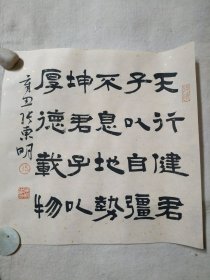 天行健君
子以自彊
不息地勢
坤君子以
厚德載物
辛丑张東明